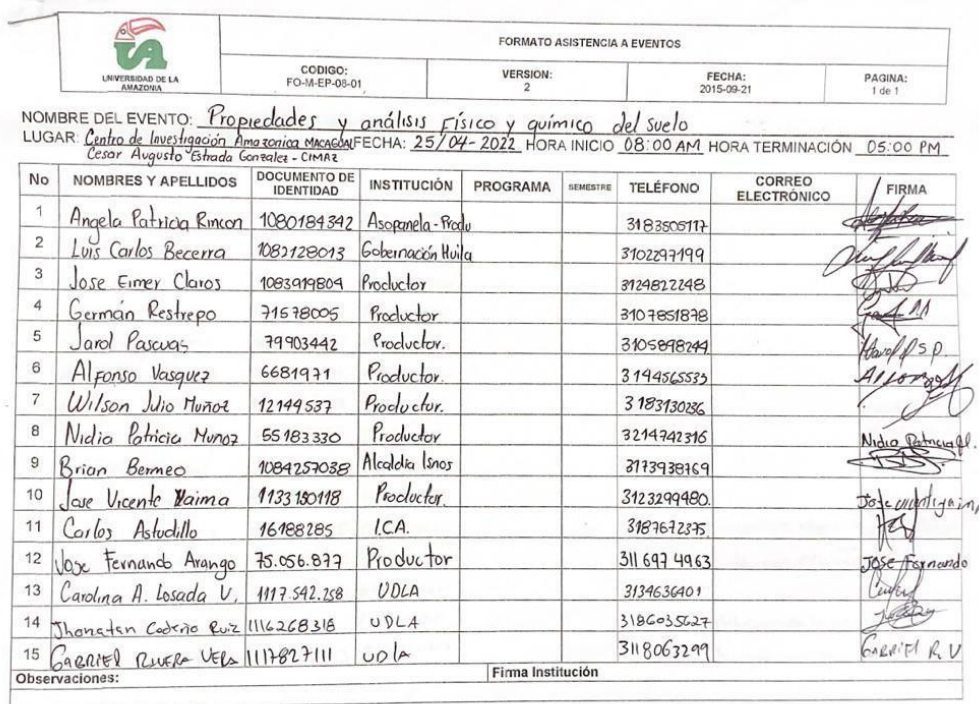 UNIVERSIDAD DE LA AMAZONIA
FORMATO ASISTENCIA A EVENTOS
CODIGO: FO-M-EP-08-01 VERSION: 2 FECHA: 2015-09-21 PAGINA: 1 de 1
NOMBRE DEL EVENTO: Propiedades y análisis Físico y químico del suelo
LUGAR: Centro de Investigación Amazonica MACAGUAL FECHA: 25/04-2022 HORA INICIO 08:00 AM HORA TERMINACIÓN 05:00 PM
Cesar Augusto Estrada Gonzalez - CIMAZ
No NOMBRES Y APELLIDOS DOCUMENTO DE IDENTIDAD INSTITUCIÓN PROGRAMA SEMESTRE TELÉFONO CORREO ELECTRÓNICO FIRMA
1 Angela Patricia Rincon 1080184342 Asopanela-Produ 3183505117
2 Luis Carlos Becerra 1082128013 Gobernación Huila 3102297199
3 Jose Eimer Claros 1083919804 Productor 3124822248
4 Germán Restrepo 71578005 Productor 3107851878
5 Jarol Pascuas 79903442 Productor. 3105898244
6 Alfonso Vasquez 6681971 Productor. 3144565533
7 Wilson Julio Muñoz 12144537 Productor. 3183130236
8 Nidia Patricia Munoz 55183330 Productor 3214742316 Nidia Patricia
9 Brian Bermeo 1084257038 Alcaldia Isnos 3173938769
10 Jose Vicente Yaima 1133150118 Productor. 3123299480.
11 Carlos Astudillo 16188285 I.C.A. 3187672375
12 Jose Fernando Arango 75.056.877 Productor 311 697 4963 JOSE Fernando
13 Carolina A. Losada V. 1117.542.258 UDLA 3134636401
14 Jhonatan Ruiz 1116268318 UDLA 3186035627
15 GABRIEL RIVERA VERA 1117827111 UDLA 3118063299 GABRIEL R. V
Observaciones: Firma Institución